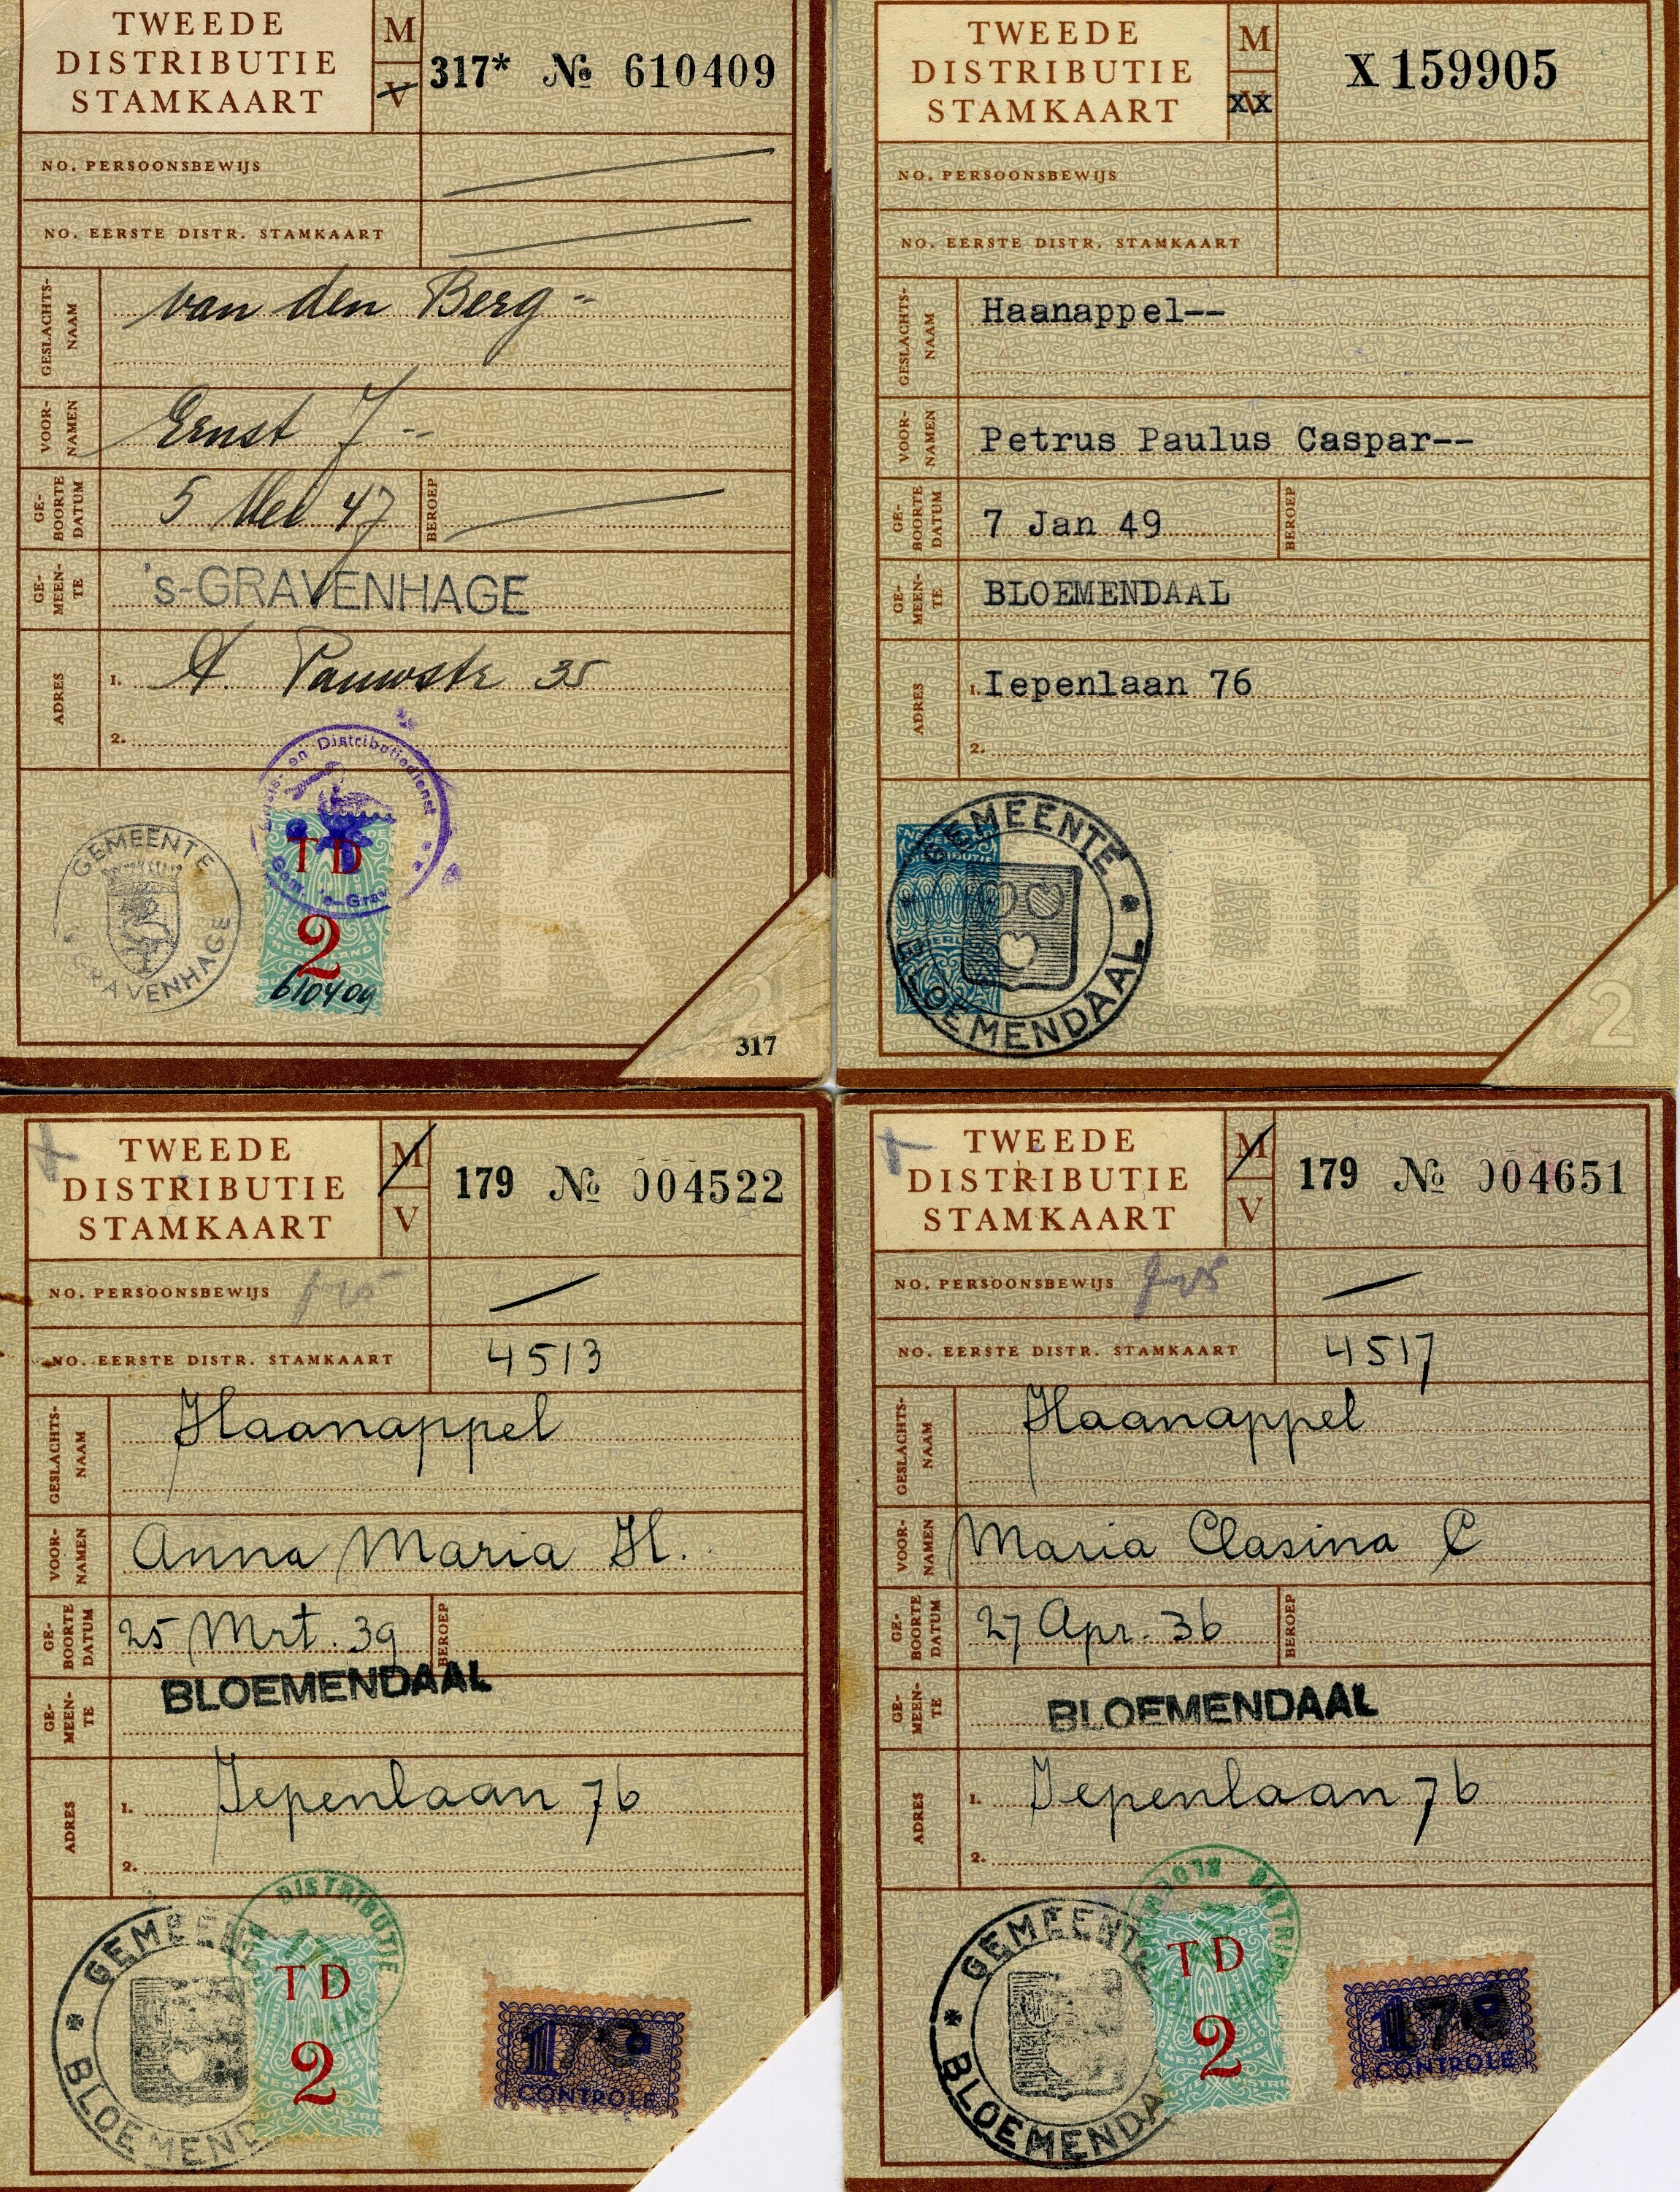 TWEEDE
DISTRIBUTIE
STAMKAART
M
V
317* № 610409
NO. PERSOONSBEWIJS
NO. EERSTE DISTR. STAMKAART
GESLACHTS-
NAAM
van den Berg
VOOR-
NAMEN
Ernst J
GE-
BOORTE
DATUM
5 Mei 47
BEROEP
GE-
MEEN-
TE
's-GRAVENHAGE
ADRES
1. A. Pauwstr 35
2.
en Distributiedienst
Gem. 's-Grav
GEMEENTE
's GRAVENHAGE
TD
2
NEDERLAND
610409
DK
2
317
TWEEDE
DISTRIBUTIE
STAMKAART
M
V
XX
X 159905
NO. PERSOONSBEWIJS
NO. EERSTE DISTR. STAMKAART
GESLACHTS-
NAAM
Haanappel--
VOOR-
NAMEN
Petrus Paulus Caspar--
GE-
BOORTE
DATUM
7 Jan 49
BEROEP
GE-
MEEN-
TE
BLOEMENDAAL
ADRES
1. Iepenlaan 76
2.
GEMEENTE
BLOEMENDAAL
DISTRIBUTIE
NEDERLAND
DK
2
TWEEDE
DISTRIBUTIE
STAMKAART
M
V
179 № 004522
NO. PERSOONSBEWIJS
NO. EERSTE DISTR. STAMKAART
4513
GESLACHTS-
NAAM
Haanappel
VOOR-
NAMEN
Anna Maria H.
GE-
BOORTE
DATUM
25 Mrt. 39
BEROEP
GE-
MEEN-
TE
BLOEMENDAAL
ADRES
1. Iepenlaan 76
2.
DISTRIBUTIE
GEMEEN
BLOEMEND
TD
2
179
CONTROLE
TWEEDE
DISTRIBUTIE
STAMKAART
M
V
179 № 004651
NO. PERSOONSBEWIJS
NO. EERSTE DISTR. STAMKAART
4517
GESLACHTS-
NAAM
Haanappel
VOOR-
NAMEN
Maria Clasina C
GE-
BOORTE
DATUM
27 Apr. 36
BEROEP
GE-
MEEN-
TE
BLOEMENDAAL
ADRES
1. Iepenlaan 76
2.
GEMEENTE
BLOEMENDA
TD
2
NEDERLAND
179
CONTROLE